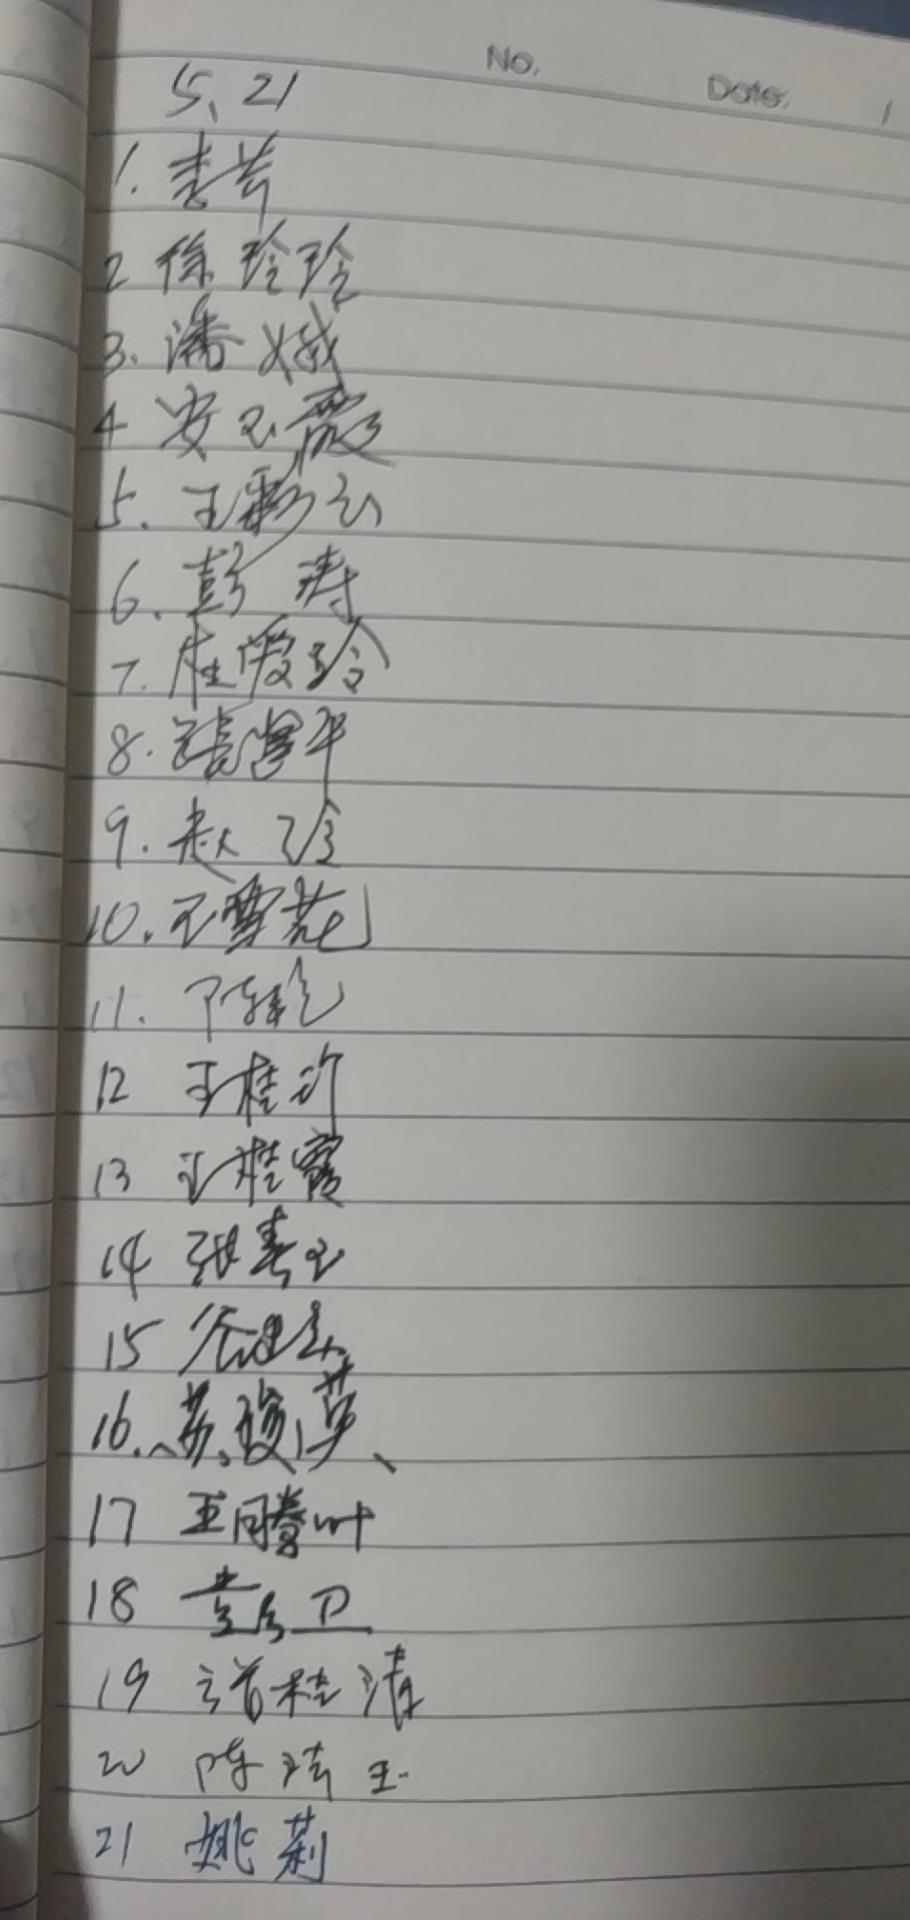 No.
Date.
5、21
1. 李芳
2 徐玲玲
3. 潘娥
4 安玉霞
5. 王彩云
6. 彭涛
7. 桂爱玲
8. 张学平
9. 赵玲
10. 王雪花
11. 陈艳
12 王桂
13 王桂霞
14 张春玉
15 谷建
16. 苏俊英
17 王腾叶
18 卫
19 桂清
20 陈琦玉
21 姚莉